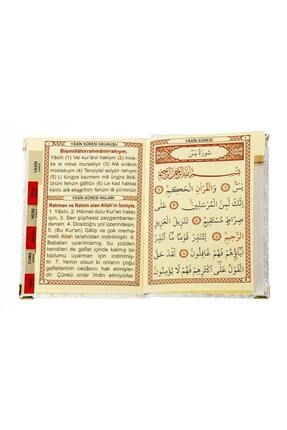 YÂSİN SÛRESİ OKUNUŞU
Bismillâhirrahmânirrahıym.
Yâsîn (1) Vel kur'ânil hakiym (2) İnne-
ke le minel murseliyn (3) Alâ sırâtım
müstekıym (4) Tenziylel aziyzir rahıym
(5) Li tünzira kavmem mâ ünzira âbâ-
ühüm fehüm ğâfilûn (6) Le kad hakkal
kavlü alâ ekserihim fehüm lâ yü'minûn
YÂSİN SÛRESİ ANLAMI
Rahman ve Rahim olan Allah'ın İsmiyle.
1. Yâsîn, 2. Hikmet dolu Kur'an hakkı
için, 3. Sen şüphesiz peygamberler-
densin. 4. Dosdoğru yol üzerindesin.
5. (Bu Kur'an) Gâlip ve çok merha-
metli Allah tarafından indirilmiştir. 6.
Babaları uyarılmamış, bu yüzden
kendileri de gaflet içinde kalmış bir
toplumu uyarman için indirilmiştir.
7. Yemin olsun ki onların çoğu
gafletlerinin cezâsını hak etmişler-
dir. Çünkü onlar îman etmiyorlar.
YÂSİN
CUMA
YÂSİN SÛRESİ
سُورَةُ يٰسٓ
بِسْمِ اللّٰهِ الرَّحْمٰنِ الرَّحِيمِ
يٰسٓ ﴿١﴾ وَالْقُرْاٰنِ الْحَكِيمِ ﴿٢﴾
اِنَّكَ لَمِنَ الْمُرْسَلِينَ ﴿٣﴾ عَلٰى
صِرَاطٍ مُسْتَقِيمٍ ﴿٤﴾ تَنْزِيلَ الْعَزِيزِ
الرَّحِيمِ ﴿٥﴾ لِتُنْذِرَ قَوْمًا مَٓا اُنْذِرَ
اٰبَٓاؤُهُمْ فَهُمْ غَافِلُونَ ﴿٦﴾ لَقَدْ حَقَّ
الْقَوْلُ عَلٰٓى اَكْثَرِهِمْ فَهُمْ لَا يُؤْمِنُونَ